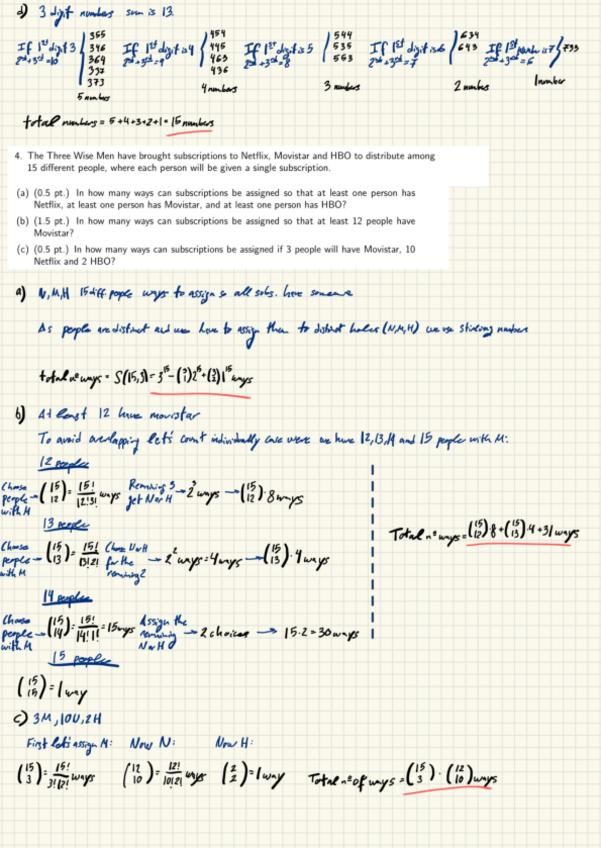 d) 3 digit numbers sum is 13.
If 1st digit 3 2nd+3rd=10 355 346 364 337 373 5 numbers
If 1st digit is 4 2nd+3rd=9 454 445 463 436 4 numbers
If 1st digit is 5 2nd+3rd=8 544 535 553 3 numbers
If 1st digit is 6 2nd+3rd=7 634 643 2 numbers
If 1st is 7 2nd+3rd=6 733 1 number
total numbers = 5+4+3+2+1 = 15 numbers
4. The Three Wise Men have brought subscriptions to Netflix, Movistar and HBO to distribute among
15 different people, where each person will be given a single subscription.
(a) (0.5 pt.) In how many ways can subscriptions be assigned so that at least one person has
Netflix, at least one person has Movistar, and at least one person has HBO?
(b) (1.5 pt.) In how many ways can subscriptions be assigned so that at least 12 people have
Movistar?
(c) (0.5 pt.) In how many ways can subscriptions be assigned if 3 people will have Movistar, 10
Netflix and 2 HBO?
a) N,M,H 15 diff people ways to assign so all subs. have someone
As people are distinct and we have to assign them to distinct holes (N,M,H) we use stirling numbers
total nº ways = S(15,3) = 3^15 - (3 2) 2^15 + (3 1) 1^15 ways
b) At least 12 have movistar
To avoid overlapping let's count individually case were we have 12,13,14 and 15 people with M:
12 people
Choose people with M → (15 12) = 15!/12!3! ways Remaining 3 get N or H → 2^3 ways → (15 12)·8 ways
13 people
Choose people with M → (15 13) = 15!/13!2! Choose N or H for the remaining 2 → 2^2 ways = 4 ways → (15 13)·4 ways
Total nº ways = (15 12)·8 + (15 13)·4 + 31 ways
14 people
Choose people with M → (15 14) = 15!/14!1! = 15 ways Assign the remaining N or H → 2 choices → 15·2 = 30 ways
15 people
(15 15) = 1 way
c) 3M, 10N, 2H
First let's assign M: Now N: Now H:
(15 3) = 15!/3!12! ways (12 10) = 12!/10!2! ways (2 2) = 1 way Total nº of ways = (15 3)·(12 10) ways